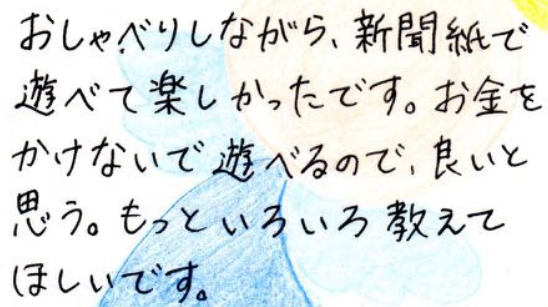 おしゃべりしながら、新聞紙で
遊べて楽しかったです。お金を
かけないで遊べるので、良いと
思う。もっといろいろ教えて
ほしいです。